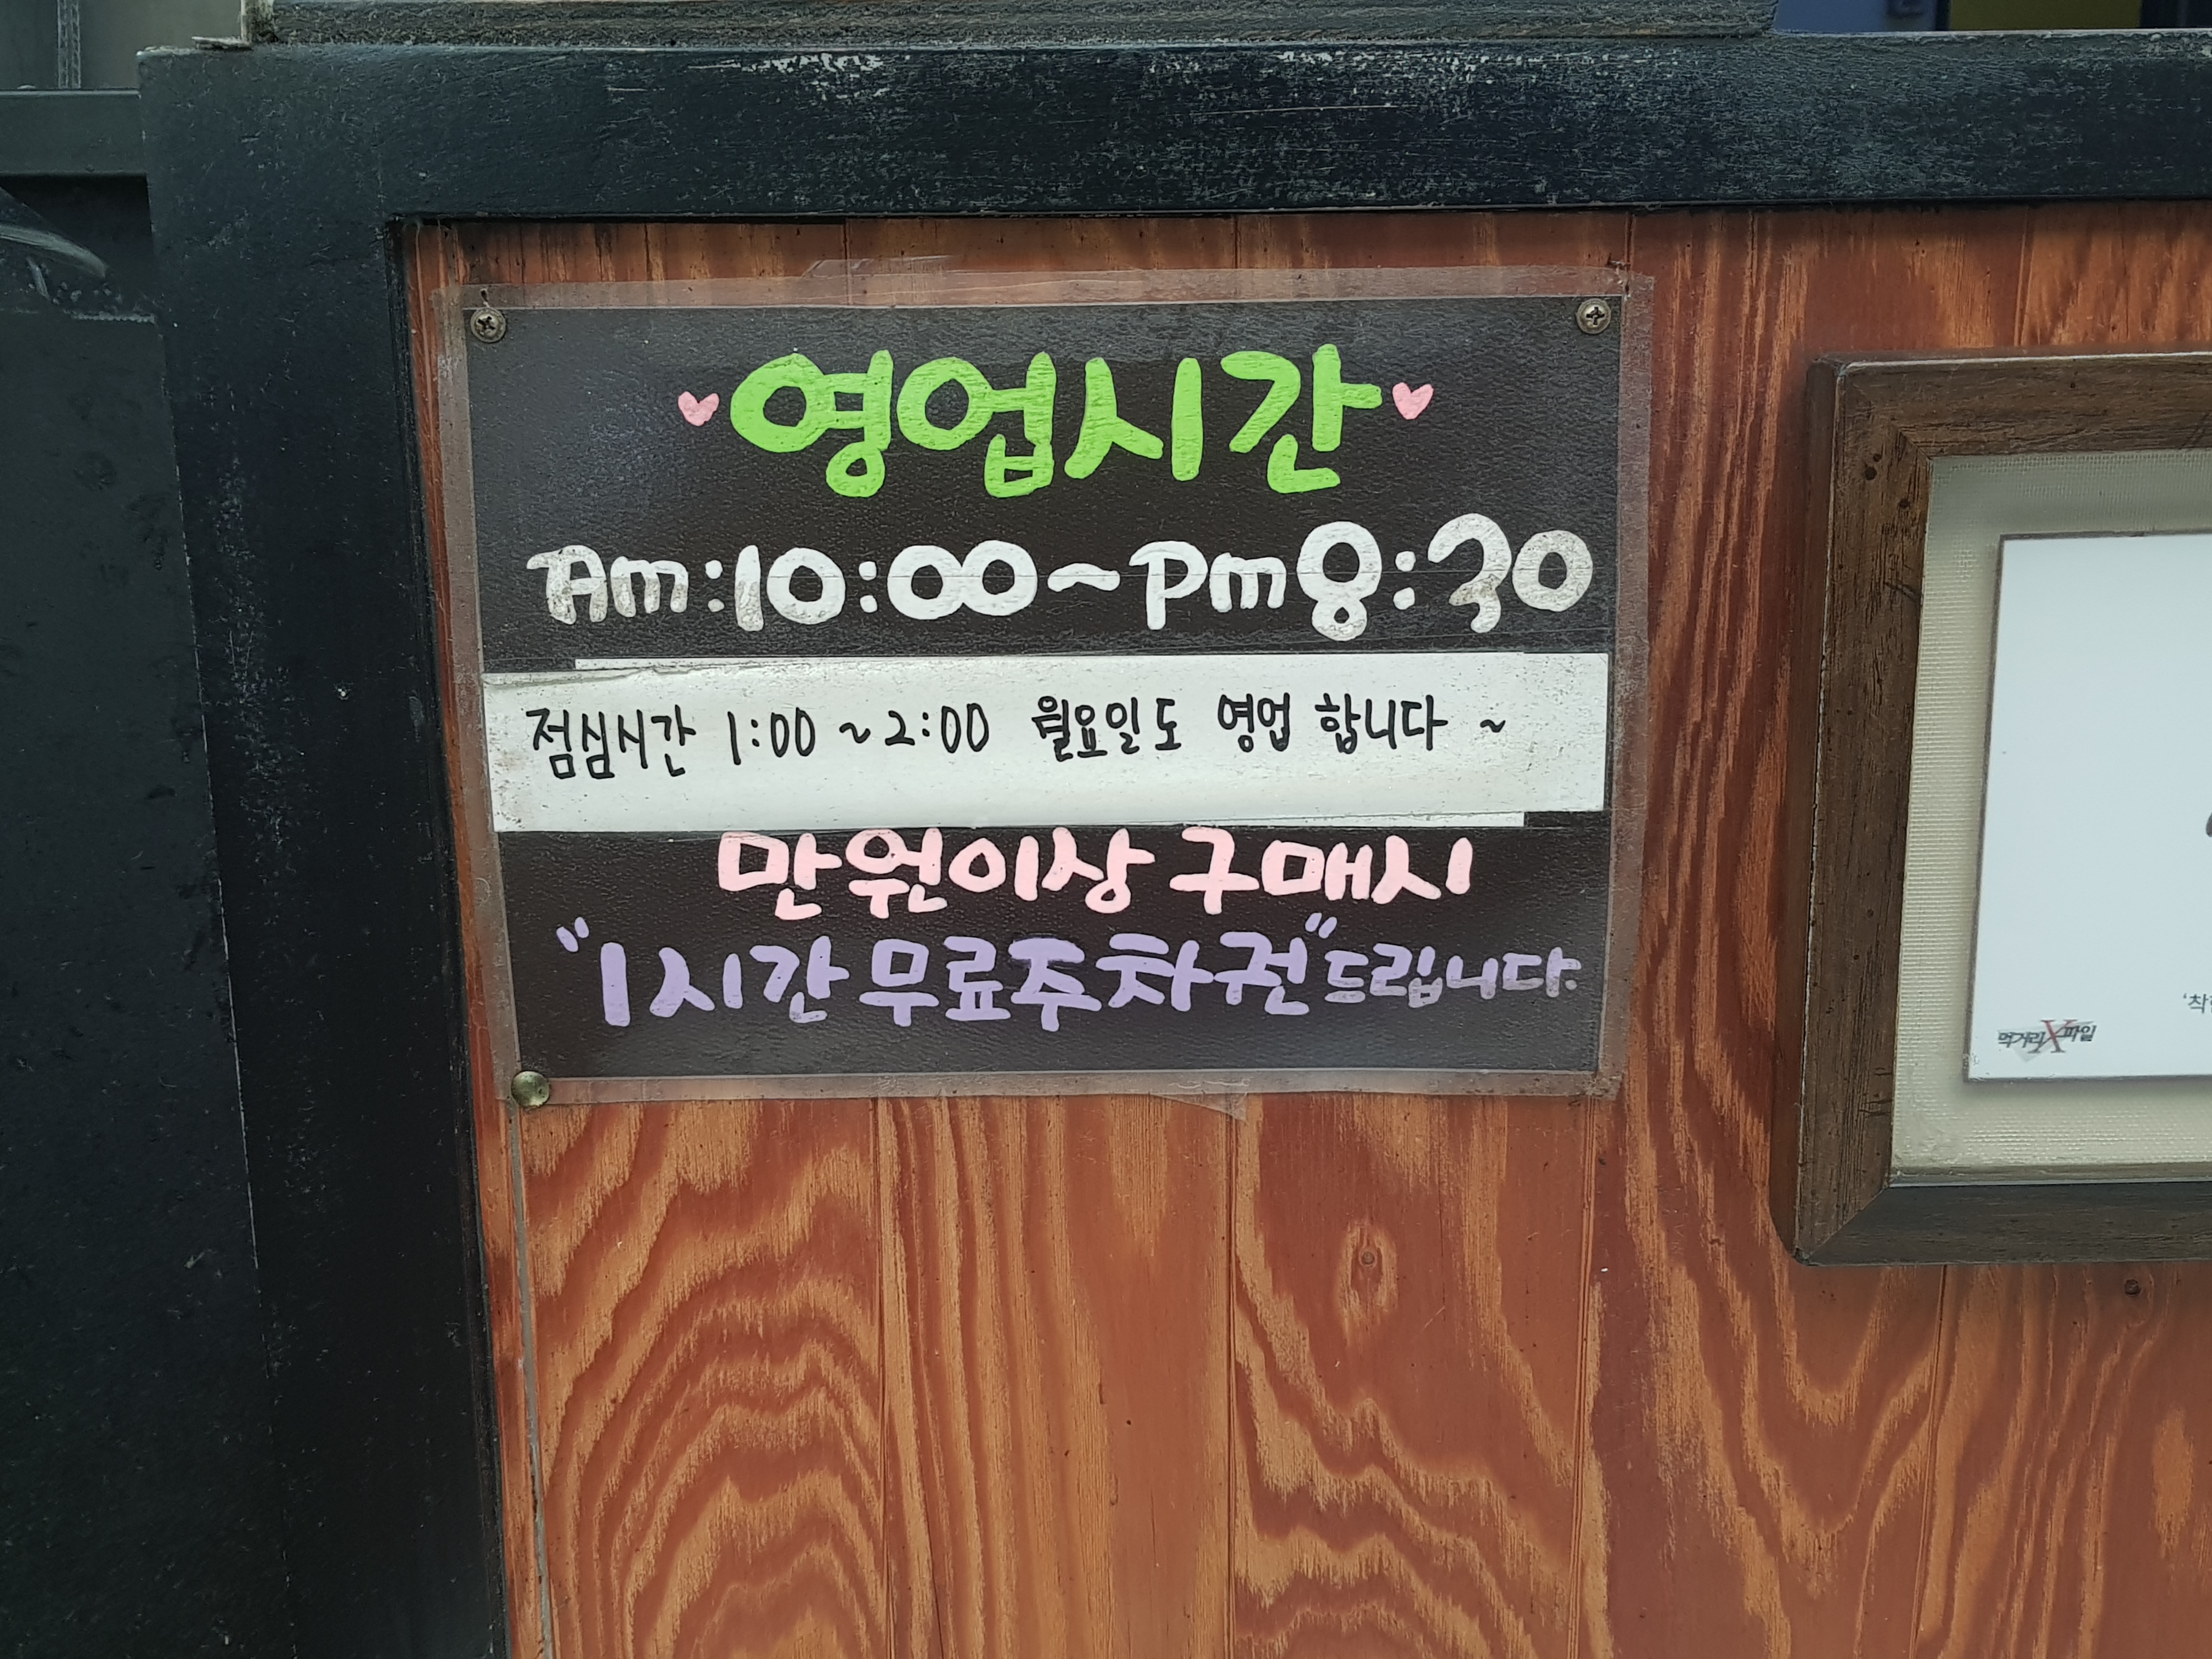 영업시간
Am:10:00~Pm8:30
점심시간 1:00 ~ 2:00 월요일도 영업 합니다 ~
만원이상 구매시
"1시간 무료주차권"드립니다.
먹거리X파일